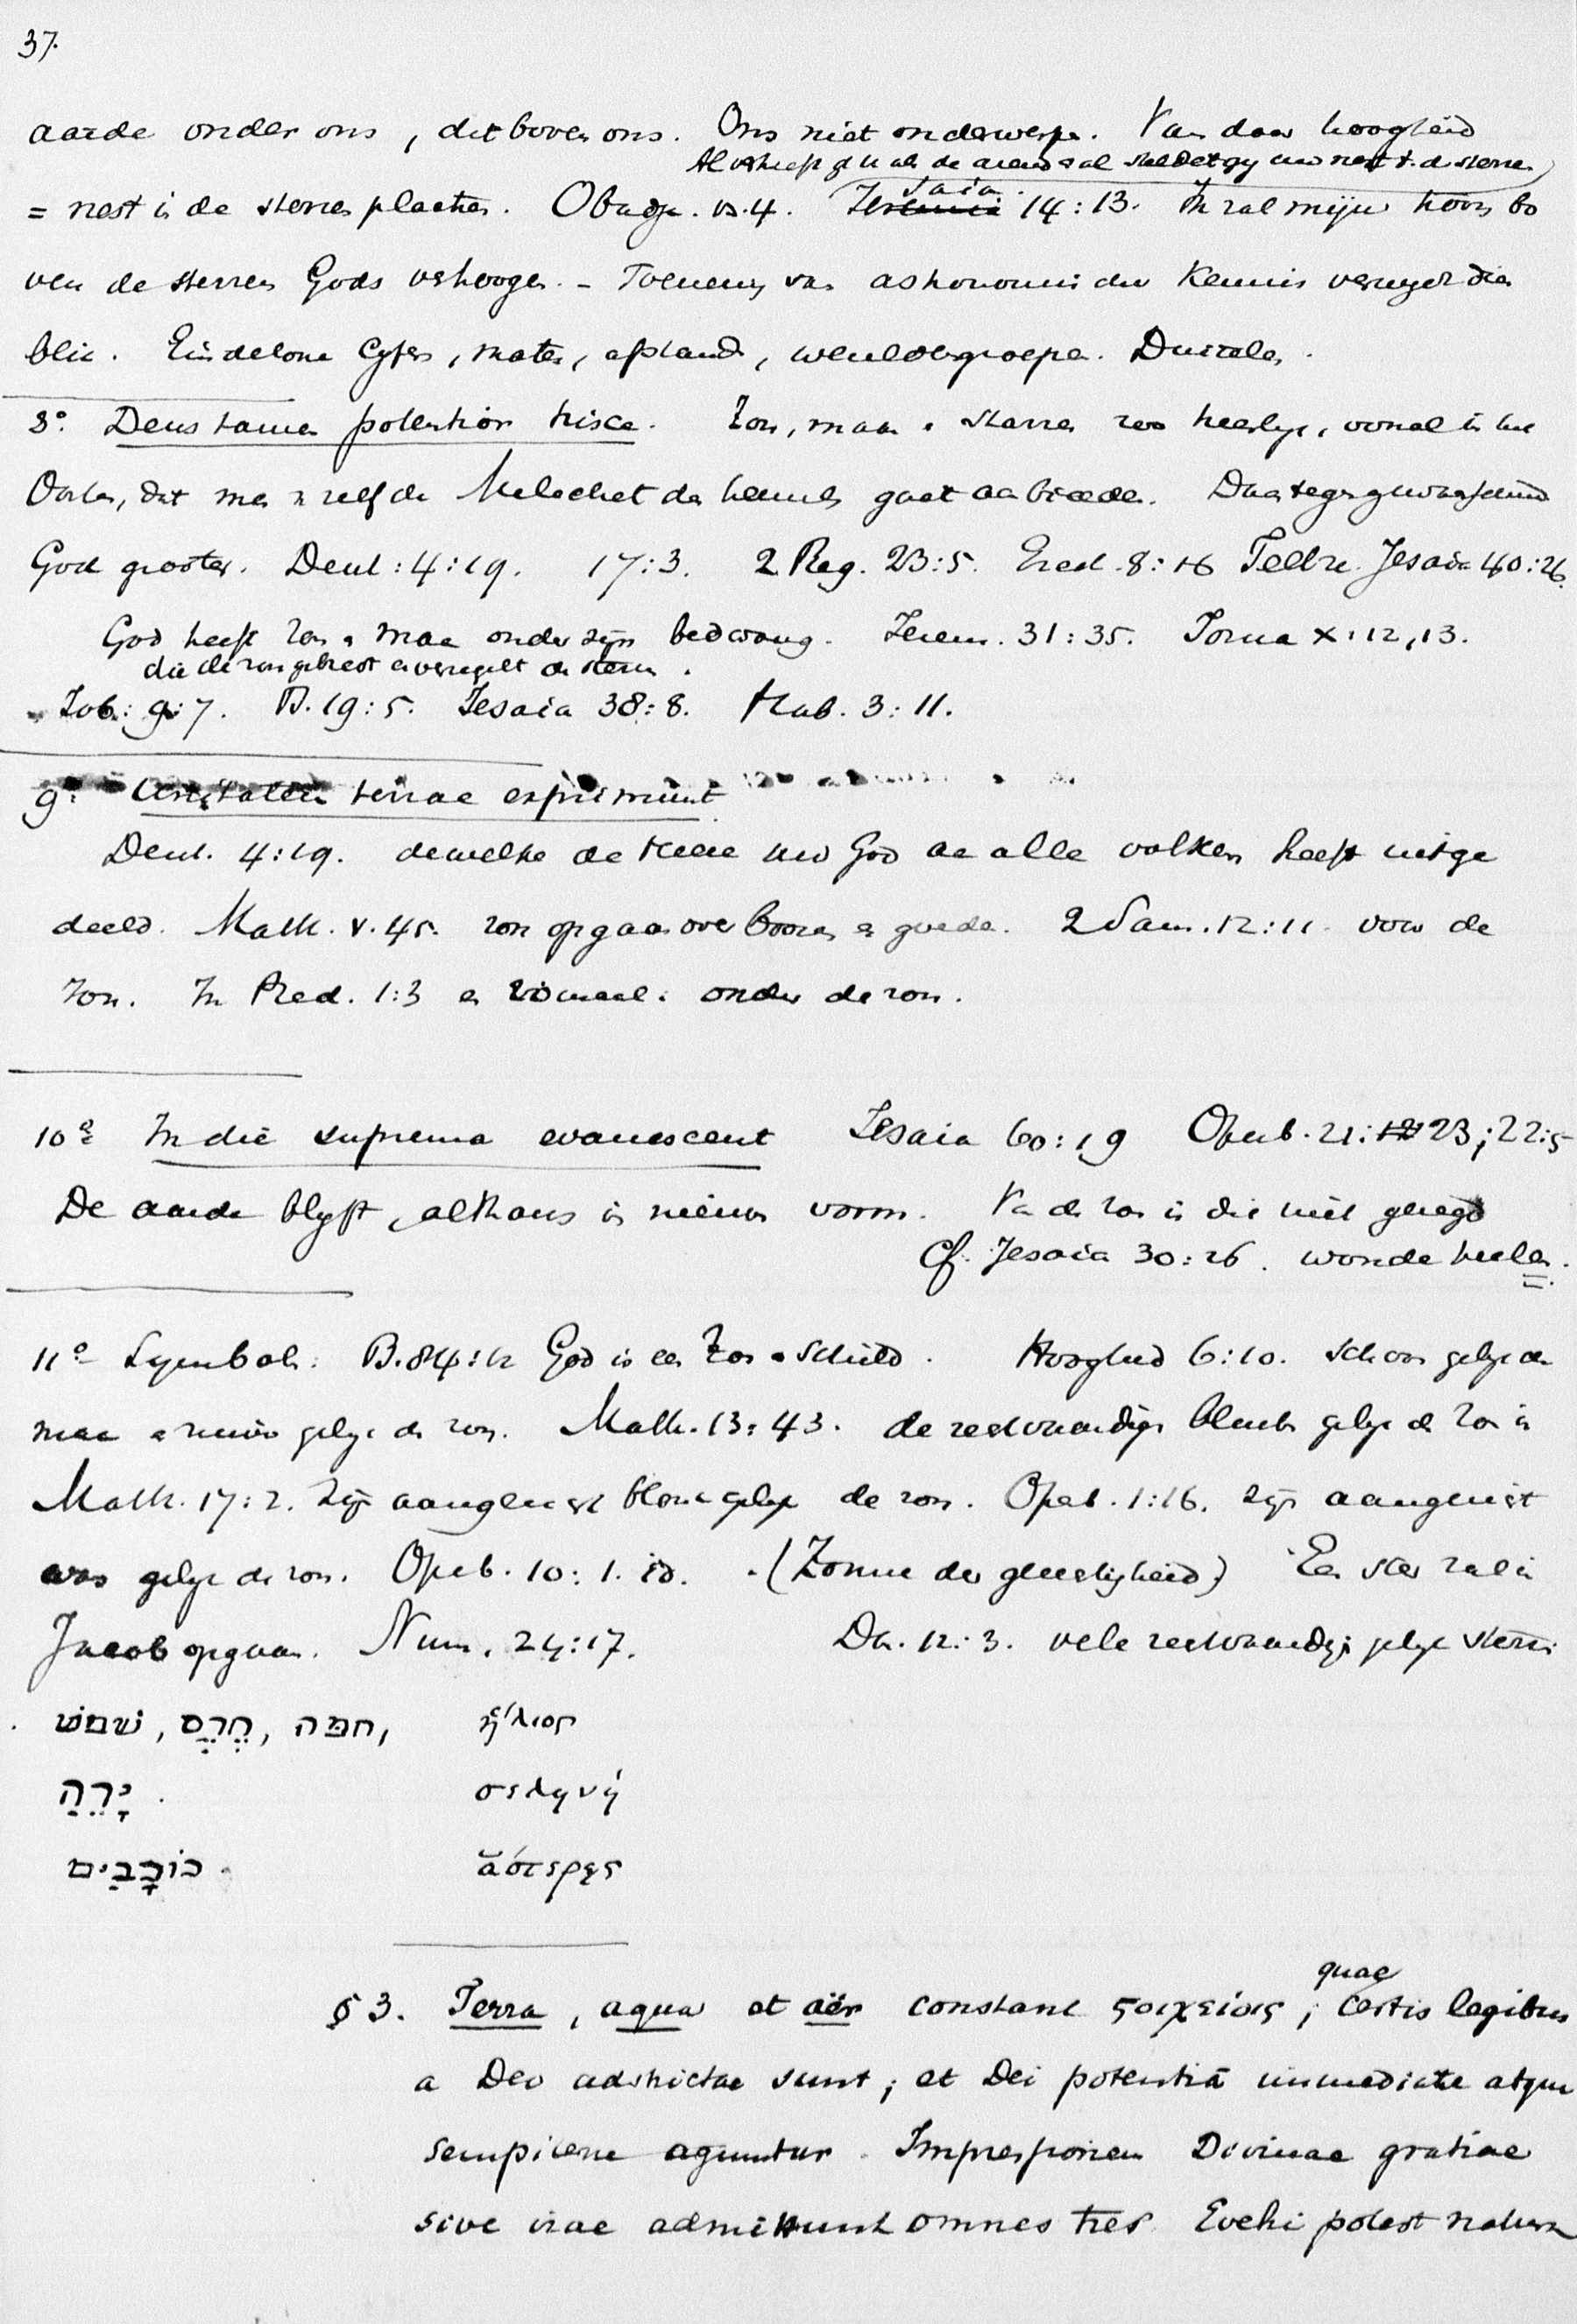 37.
aarde onder ons, dit boven ons. Ons niet onderworpen. Van daar hoogheid
Al verhieft gy u als de arend en al steldet gy uw nest t. d. sterren
= nest in de sterren plaatsen. Obadja. vs. 4. Jesaia 14:13. Ik zal mijn troon bo
ven de sterren Gods verhoogen. - Toeneming van astronomische Kennis verergert dien
blik. Eindelooze Cyfers, maten, afstand, wereldgroepen. Duizelen.
8° Deus tamen potentior hisce. Zon, maan & sterren zoo heerlyk, vooral in het
Oosten, dat men z zelf de Melechet des hemels gaat aanbidden. Daartegen gewaarschuwd
God grooter. Deut: 4:19. 17:3. 2 Reg. 23:5. Ezech. 8:16 Telbre. Jesaia 40:26.
God heeft zon & maan onder zijn bedwang. Jerem. 31:35. Josua X:12,13.
die de zon gebiedt en verzegelt de sterren.
Job: 9:7. Ps. 19:5. Jesaia 38:8. Hab. 3:11.
9° terrae exprimunt
Deut. 4:19. dewelke de Heere uw God aan alle volken heeft uitge
deeld. Matth. V. 45. zon opgaan over boozen en goeden. 2 Sam. 12:11. voor de
zon. In Pred. 1:3 en 20 maal: onder de zon.
10° In die suprema evanescent Jesaia 60:19 Openb. 21:23; 22:5
De aarde blyft, althans in nieuwen vorm. Van de zon is die niet gezegd
Cf. Jesaia 30:26. wonde heelen.
11° Symbol: Ps. 84:12 God is een Zon & Schild. Hooglied 6:10. schoon gelyk de
maan & zuiver gelyk de zon. Matth. 13:43. de rechtvaardigen blinken gelyk de Zon in
Matth. 17:2. Zijn aangezicht blonk gelyk de zon. Openb. 1:16. zijn aangezicht
was gelyk de zon. Openb. 10:1. id. (Zonne der gerechtigheid) Een ster zal in
Jacob opgaan. Num. 24:17. Dan. 12:3. vele rechtvaardigen gelyk sterren
שׁמשׁ, חֶרֶס, חמה, ἥλιος
יָרֵהַ. σεληνή
כוֹכָבִים. ἄστερες
§ 3. Terra, aqua et aër constant στοιχείοις, quae certis legibus
a Deo adstrictae sunt; et Dei potentiâ immediate atque
sempiterne aguntur. Impressionem Divinae gratiae
sive irae admittunt omnes tres. Evehi potest natura